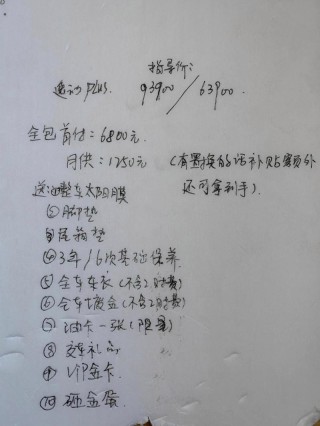 指导价:
逸动 PLUS. 93900 / 63900.
全包首付=6800元.
月供=1750元 (有置换的话补贴额外
还可拿到手).
送①整车太阳膜
②脚垫
③尾箱垫
④3年/6次基础保养
⑤全车车衣(不含工时费)
⑥全车镀金(不含工时费)
⑦油卡一张(限量)
⑧交车礼
⑨VIP金卡.
⑩砸金蛋.